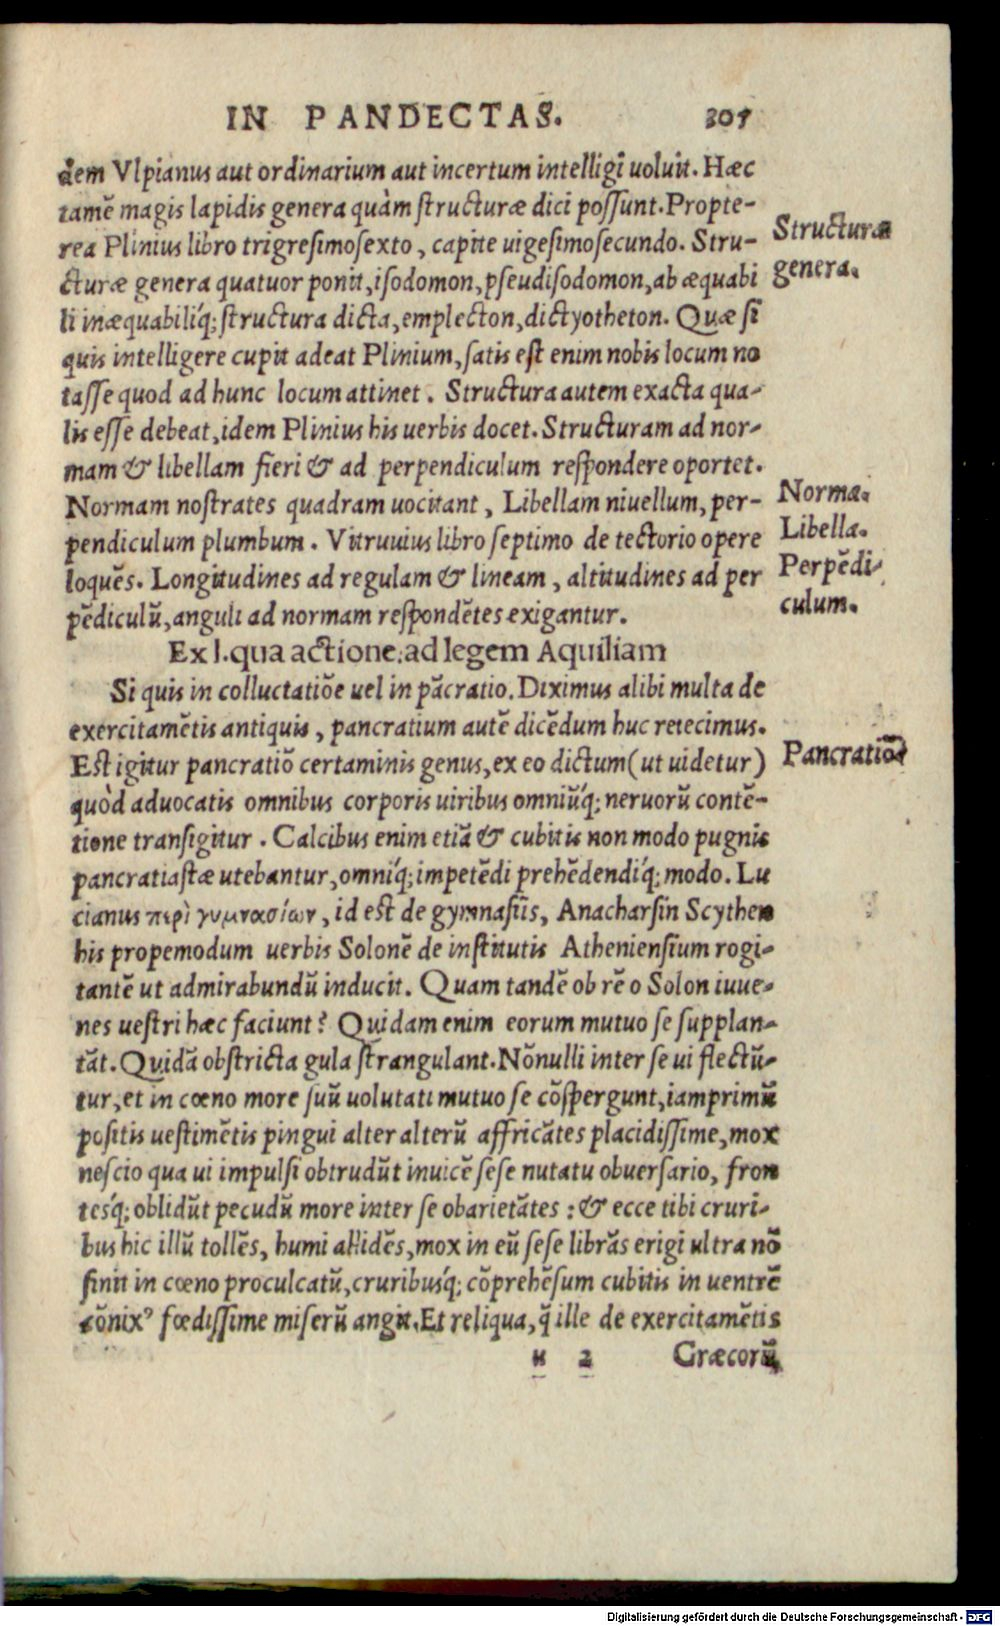 IN PANDECTAS. 305
dem Vlpianus aut ordinarium aut incertum intelligi uoluit. Hæc
tamē magis lapidis genera quàm structuræ dici possunt. Propte-
rea Plinius libro trigresimosexto, capite uigesimosecundo. Stru-
cturæ genera quatuor ponit, isodomon, pseudisodomon, ab æquabi
li inæquabiliq́; structura dicta, emplecton, dictyotheton. Quæ si
quis intelligere cupit adeat Plinium, satis est enim nobis locum no
tasse quod ad hunc locum attinet. Structura autem exacta qua-
lis esse debeat, idem Plinius his uerbis docet. Structuram ad nor-
mam & libellam fieri & ad perpendiculum respondere oportet.
Normam nostrates quadram uocitant, Libellam niuellum, per-
pendiculum plumbum. Vitruuius libro septimo de tectorio opere
loquēs. Longitudines ad regulam & lineam, altitudines ad per
pēdiculū, anguli ad normam respondētes exigantur.
Structuræ
genera.
Norma.
Libella.
Perpēdi-
culum.
Ex l. qua actione. ad legem Aquiliam
Si quis in colluctatiōe uel in pācratio. Diximus alibi multa de
exercitamētis antiquis, pancratium autē dicēdum huc reiecimus.
Est igitur pancratiō certaminis genus, ex eo dictum (ut uidetur)
quòd aduocatis omnibus corporis uiribus omniūq́; neruorū contē-
tione transigitur. Calcibus enim etiā & cubitis non modo pugnis
pancratiastæ utebantur, omniq́; impetēdi prehēdendiq́; modo. Lu
cianus περὶ γυμνασίων, id est de gymnasiis, Anacharsin Scythen
his propemodum uerbis Solonē de institutis Atheniensium rogi-
tantē ut admirabundū inducit. Quam tandē ob rē o Solon iuue-
nes uestri hæc faciunt? Quidam enim eorum mutuo se supplan-
tāt. Quidā obstricta gula strangulant. Nōnulli inter se ui flectū-
tur, et in cœno more suū uolutati mutuo se cōspergunt, iamprimū
positis uestimētis pingui alter alterū affricātes placidissime, mox
nescio qua ui impulsi obtrudūt inuicē sese nutatu obuersario, fron
tesq́; oblidūt pecudū more inter se obarietātes: & ecce tibi cruri-
bus hic illū tollēs, humi allidēs, mox in eū sese librās erigi ultra nō
sinit in cœno proculcatū, cruribusq́; cōprehēsum cubitis in uentrē
cōnixꝰ fœdissime miserū angit. Et reliqua, q̄ ille de exercitamētis
Pancratiō
u 2 Græcorū
Digitalisierung gefördert durch die Deutsche Forschungsgemeinschaft - DFG